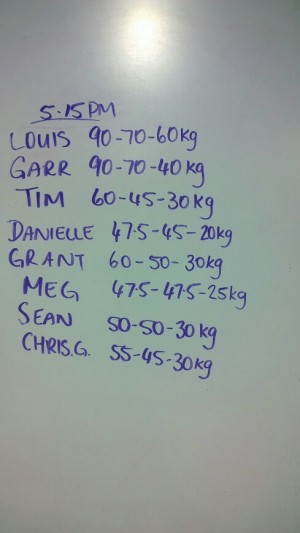 5.15PM
LOUIS 90-70-60kg
GARR 90-70-40kg
TIM 60-45-30kg
DANIELLE 47.5-45-20kg
GRANT 60-50-30kg
MEG 47.5-47.5-25kg
SEAN 50-50-30kg
CHRIS.G. 55-45-30kg